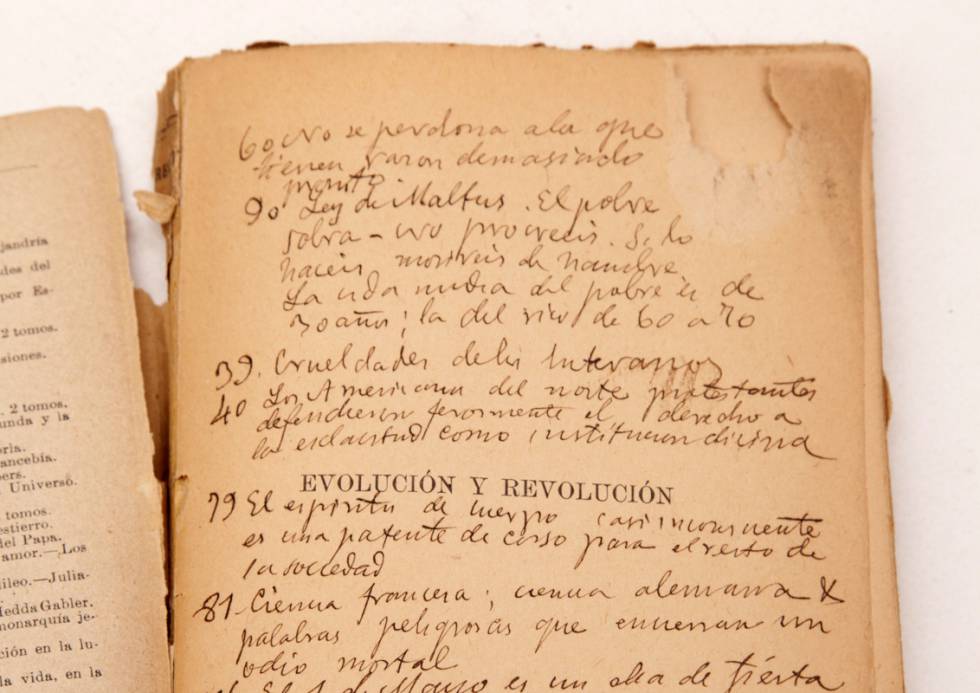 jandría
des del
por Es-
2 tomos.
siones.
. 2 tomos.
unda y la
oria.
ancebía.
pers.
Universo.
tomos.
estierro.
del Papa.
amor.—Los
lileo.—Julia-
Hedda Gabler.
monarquía je-
ción en la lu-
la vida, en la
60 No se perdona a los que
tienen razon demasiado
pronto
90 Ley de Maltus. El pobre
sobra - no procreeis. Si lo
haceis morireis de hambre.
La vida media del pobre es de
30 años; la del rico de 60 a 70
39. Crueldades de los luteranos
40 Los Americanos del norte protestantes
defendieron ferozmente el derecho a
la esclavitud como institucion divina
EVOLUCIÓN Y REVOLUCIÓN
79 El espiritu de cuerpo casi
es una patente de corso para el resto de
la sociedad
81. Ciencia francesa; ciencia alemana &
palabras peligrosas que encierran un
odio mortal
El 1 de Mayo es un dia de fiesta